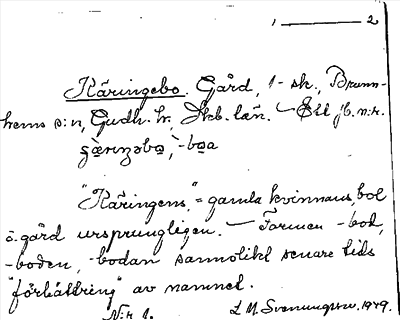 1 ——— 2
Käringebo. Gård, 1 sk., Brunn-
hems s:n, Gudh. hr, Skb. län. – Ett jb. n:r.
"Käringens," = gamla kvinnans, bol
o. gård ursprungligen. – Formen -bod,
-boden, -bodan sannolikt senare tids
"förbättring" av namnet.
N:r 1.
L M. Svenungsson. 1949.